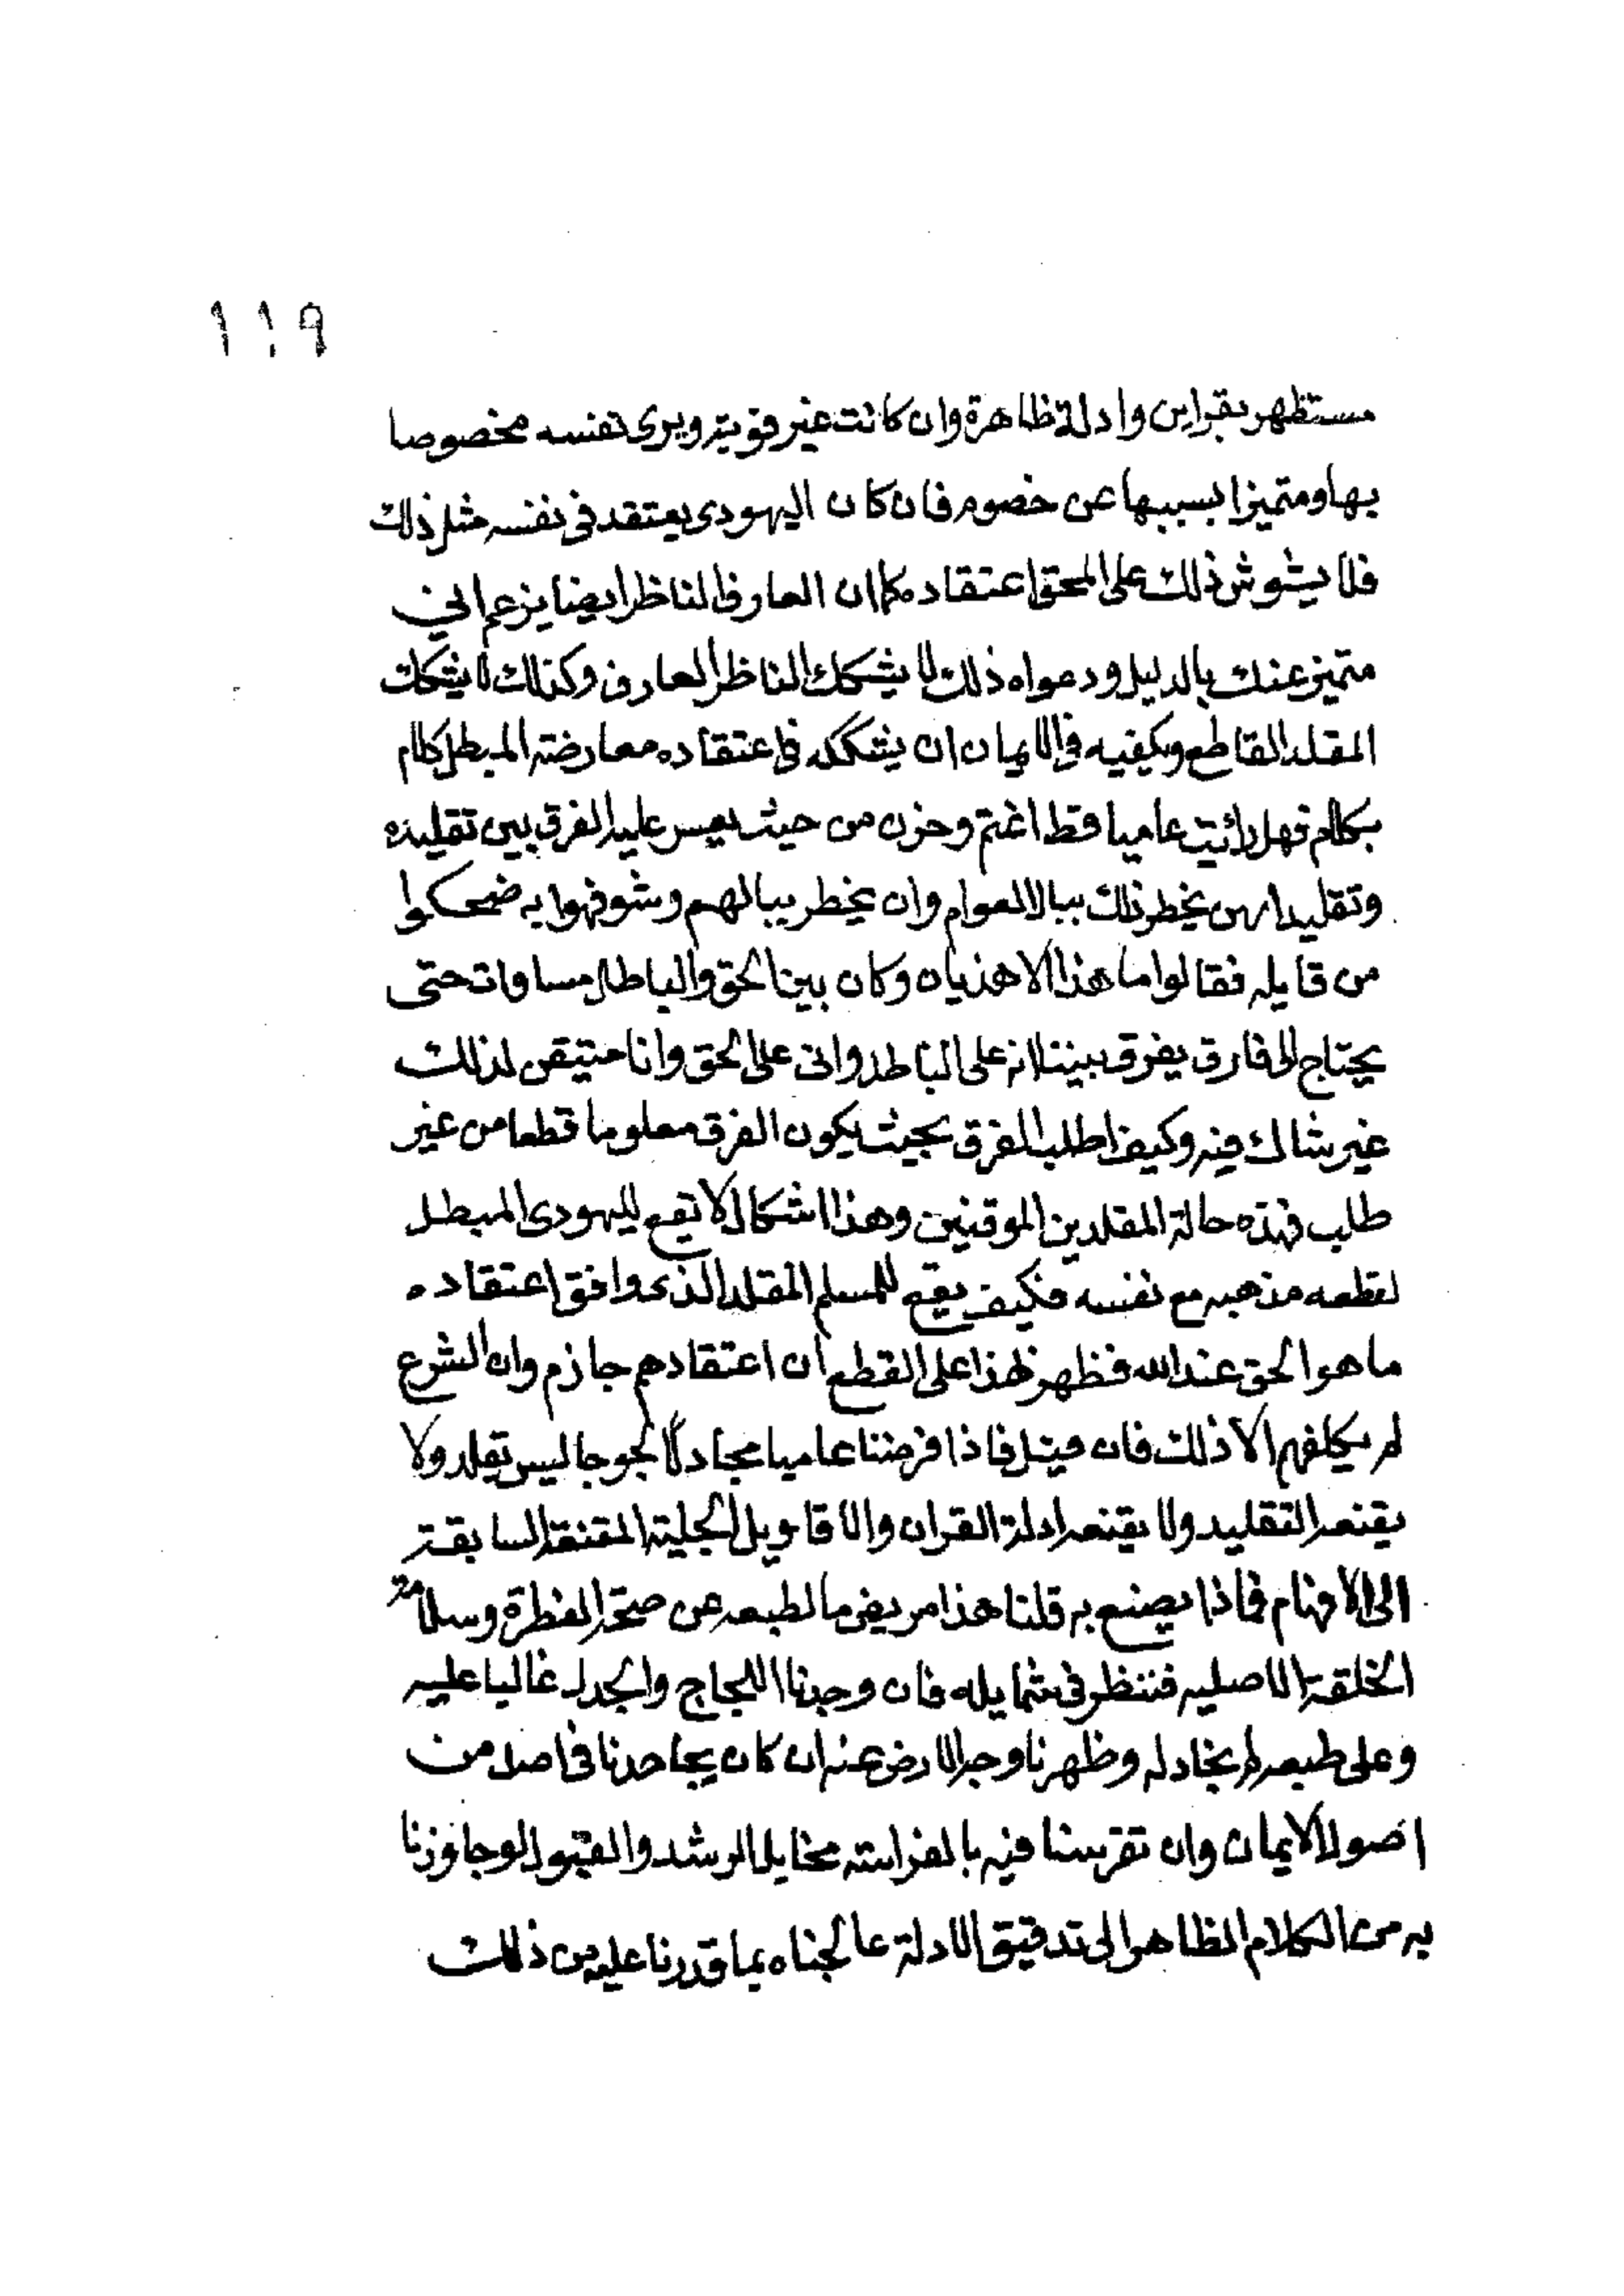 ١١٩
مستظهر بقراين وادلة ظاهرة وان كانت غير قوية ويرى نفسه مخصوصا
بها ومتميزا بسببها عن خصوم فان كان اليهودى يعتقد فى نفسه مثل ذلك
فلا يشوش ذلك على المحق اعتقاده كما ان العارف الناظر ايضا يزعم انى
متميز عنك بالدليل ودعواه ذلك لا يشكك الناظر العارف وكذلك لا يشكك
المقلد القاطع ويكفيه فى الايمان ان يشككه فى اعتقاده معارضة المبطل كلام
بكلام فهل رائيت عاميا قط اغتم وحزن من حيث يعسر عليه الفرق بين تقليده
وتقليد يخطر ذلك ببال العوام وان يخطر ببالهم وشوفهوا به ضحكوا
من قايله فقالوا ما هذا الا هذيان وكان بين الحق والباطل مساوات حتى
يحتاج الى فارق يفرق بيننا انه على الباطل وانى على الحق وانا متيقن لذلك
غير شاك فيه وكيف اطلب الفرق بحيث يكون الفرق معلوما قطعا من غير
طلب فهذه حالة المقلدين الموقنين وهذا اشكال لا يقع لليهودى المبطل
لقطعه مذهبه مع نفسه فكيف يقع للمسلم المقلد الذى وافق اعتقاده
ما هو الحق عند الله فظهر بهذا على القطع ان اعتقادهم جازم وان الشرع
لم يكلفهم الا ذلك فان قيل فاذا فرضنا عاميا مجادلا لجوجا ليس يقلد ولا
يقنعه التقليد ولا يقنعه ادلة القران والاقاويل الجلية المقنعة السابقة
الى الافهام فماذا يصنع به قلنا هذا مريض مال طبعه عن صحة الفطرة وسلامة
الخلقة الاصليه فننظر فى شمايله فان وجدنا اللجاج والجدل غالبا عليه
وعلى طبعه لم نجادله وظهرنا وجه الارض عنه ان كان يجاحدنا فى اصل من
اصول الايمان وان تفرسنا فيه بالفراسة مخايل الرشد والقبول لو جاوزنا
به من الكلام الظاهر الى تدقيق الادلة عالجناه بما قدرنا عليه من ذلك